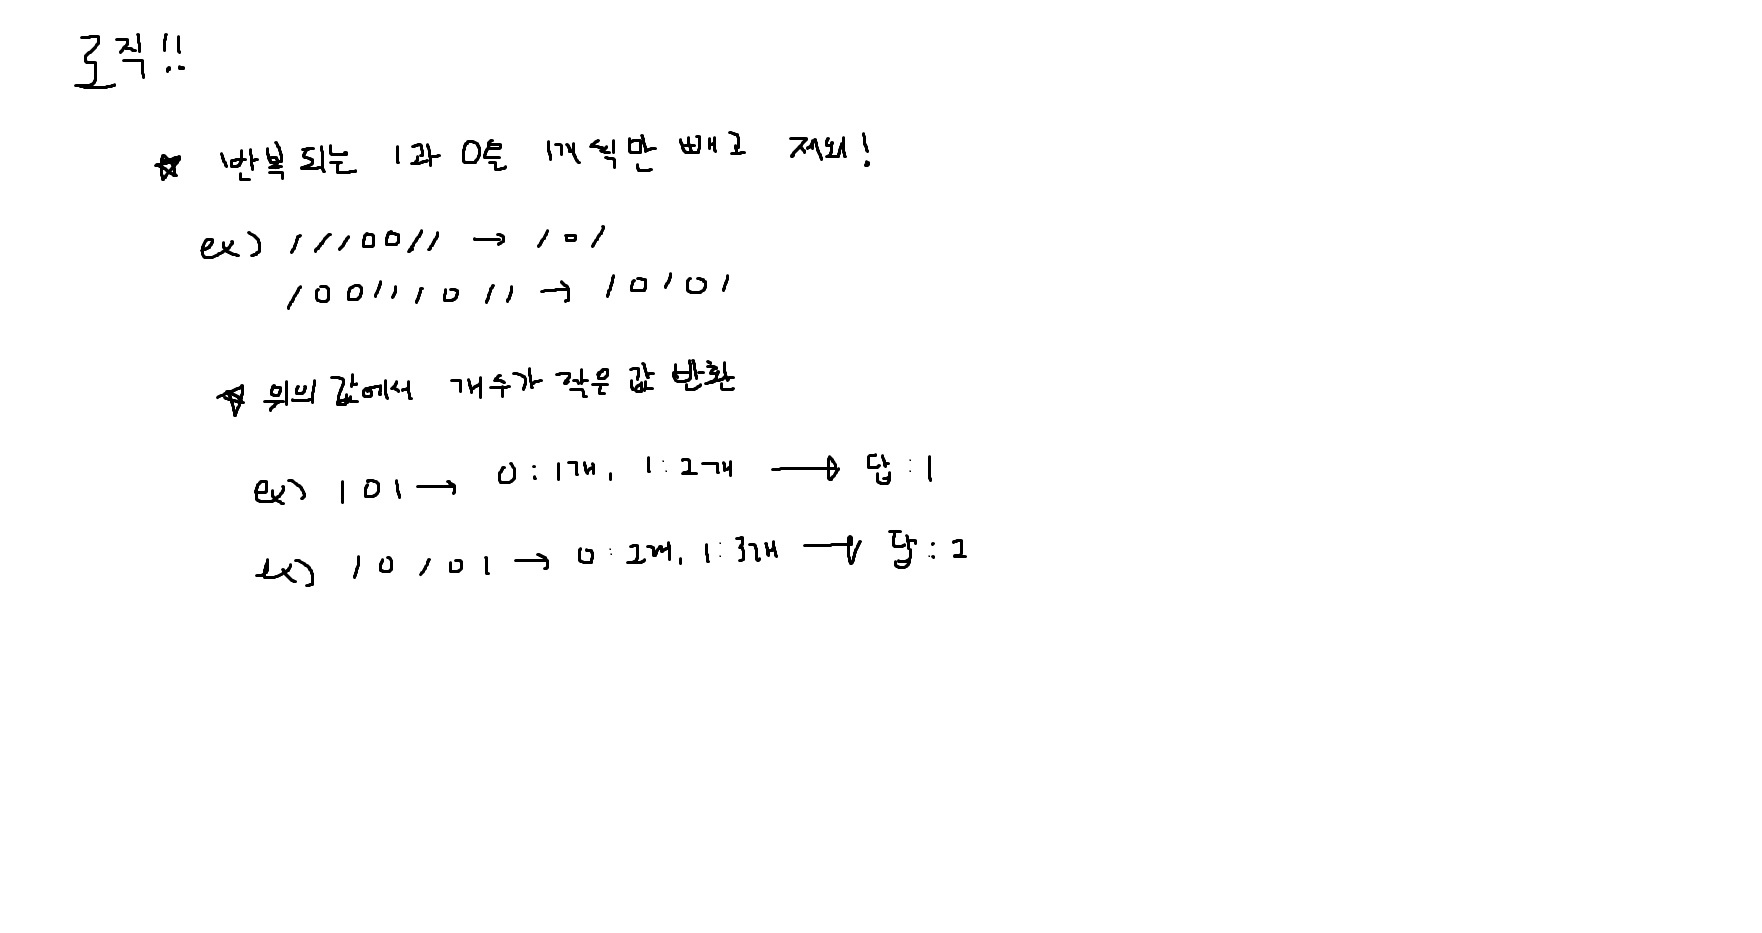 로직!!
★ 반복되는 1과 0을 1개씩만 빼고 제외!
ex) 1110011 → 101
100111011 → 10101
★ 위의 값에서 개수가 작은 값 반환
ex) 101 → 0:1개, 1:2개 → 답:1
ex) 10101 → 0:2개, 1:3개 → 답:2